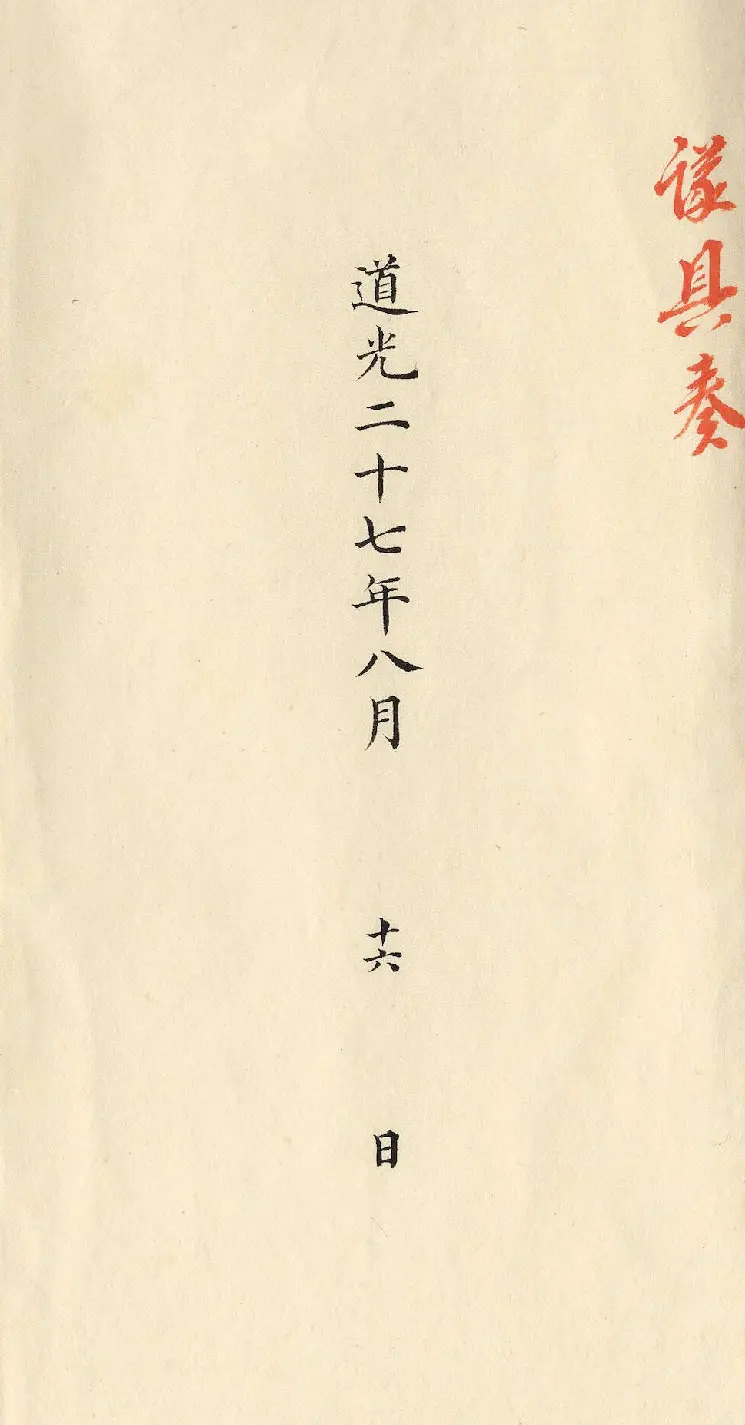 議具奏
道光二十七年八月十六日